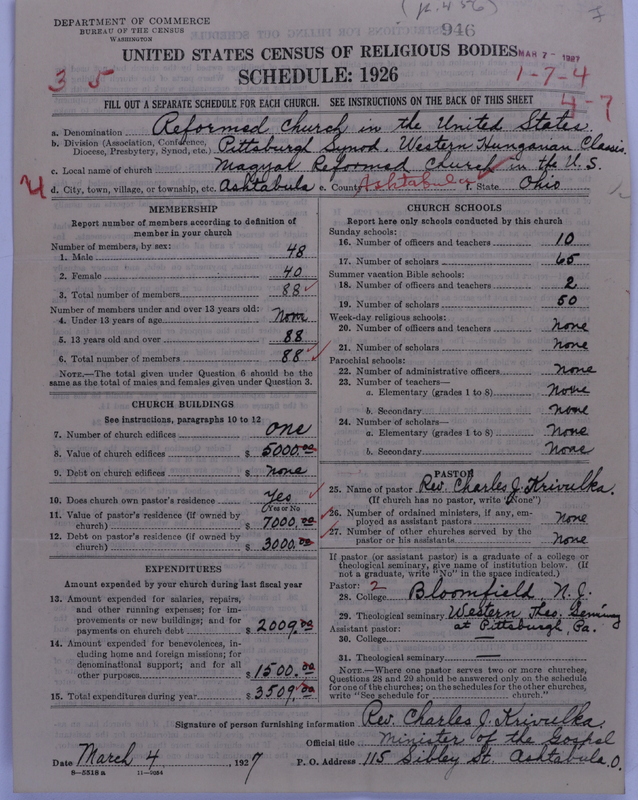 (p. 456)
946
DEPARTMENT OF COMMERCE
BUREAU OF THE CENSUS
WASHINGTON
UNITED STATES CENSUS OF RELIGIOUS BODIES
MAR 7 - 1927
SCHEDULE: 1926
3 5
1-7-4
4-7
FILL OUT A SEPARATE SCHEDULE FOR EACH CHURCH. SEE INSTRUCTIONS ON THE BACK OF THIS SHEET
a. Denomination Reformed Church in the United States
b. Division (Association, Conference, Diocese, Presbytery, Synod, etc.) Pittsburgh Synod, Western Hungarian Classis
c. Local name of church Magyar Reformed Church in the U. S.
4
d. City, town, village, or township, etc. Ashtabula e. County Ashtabula f. State Ohio
MEMBERSHIP
Report number of members according to definition of
member in your church
Number of members, by sex:
1. Male 48
2. Female 40
3. Total number of members 88
Number of members under and over 13 years old:
4. Under 13 years of age None
5. 13 years old and over 88
6. Total number of members 88
NOTE.—The total given under Question 6 should be
same as the total of males and females given under Question 3.
CHURCH BUILDINGS
See instructions, paragraphs 10 to 12
7. Number of church edifices One
8. Value of church edifices $ 5000.00
9. Debt on church edifices $ None
10. Does church own pastor's residence Yes
(Yes or No)
11. Value of pastor's residence (if owned by
church) $ 7000.00
12. Debt on pastor's residence (if owned by
church) $ 3000.00
EXPENDITURES
Amount expended by your church during last fiscal year
13. Amount expended for salaries, repairs,
and other running expenses; for im-
provements or new buildings; and for
payments on church debt $ 2009.00
14. Amount expended for benevolences, in-
cluding home and foreign missions; for
denominational support; and for all
other purposes $ 1500.00
15. Total expenditures during year $ 3509.00
CHURCH SCHOOLS
Report here only schools conducted by this church
Sunday schools:
16. Number of officers and teachers 10
17. Number of scholars 65
Summer vacation Bible schools:
18. Number of officers and teachers 2
19. Number of scholars 50
Week-day religious schools:
20. Number of officers and teachers None
21. Number of scholars None
Parochial schools:
22. Number of administrative officers None
23. Number of teachers—
a. Elementary (grades 1 to 8) None
b. Secondary None
24. Number of scholars—
a. Elementary (grades 1 to 8) None
b. Secondary None
PASTOR
25. Name of pastor Rev. Charles J. Krivulka.
(If church has no pastor, write "None")
26. Number of ordained ministers, if any, em-
ployed as assistant pastors None
27. Number of other churches served by the
pastor or his assistants None
If pastor (or assistant pastor) is a graduate of a college or
theological seminary, give name of institution below. (If
not a graduate, write "No" in the space indicated.)
Pastor: 2
28. College Bloomfield, N. J.
29. Theological seminary Western Theo. Seminary
Assistant pastor: at Pittsburgh, Pa.
30. College —
31. Theological seminary —
NOTE.—Where one pastor serves two or more churches,
Questions 28 and 29 should be answered only on the schedule
for one of the churches; on the schedules for the other churches,
write "See schedule for church."
Signature of person furnishing information Rev. Charles J. Krivulka,
Official title Minister of the Gospel
Date March 4, 1927 P. O. Address 115 Sibley St. Ashtabula, O.
8—5518 a 11—9054